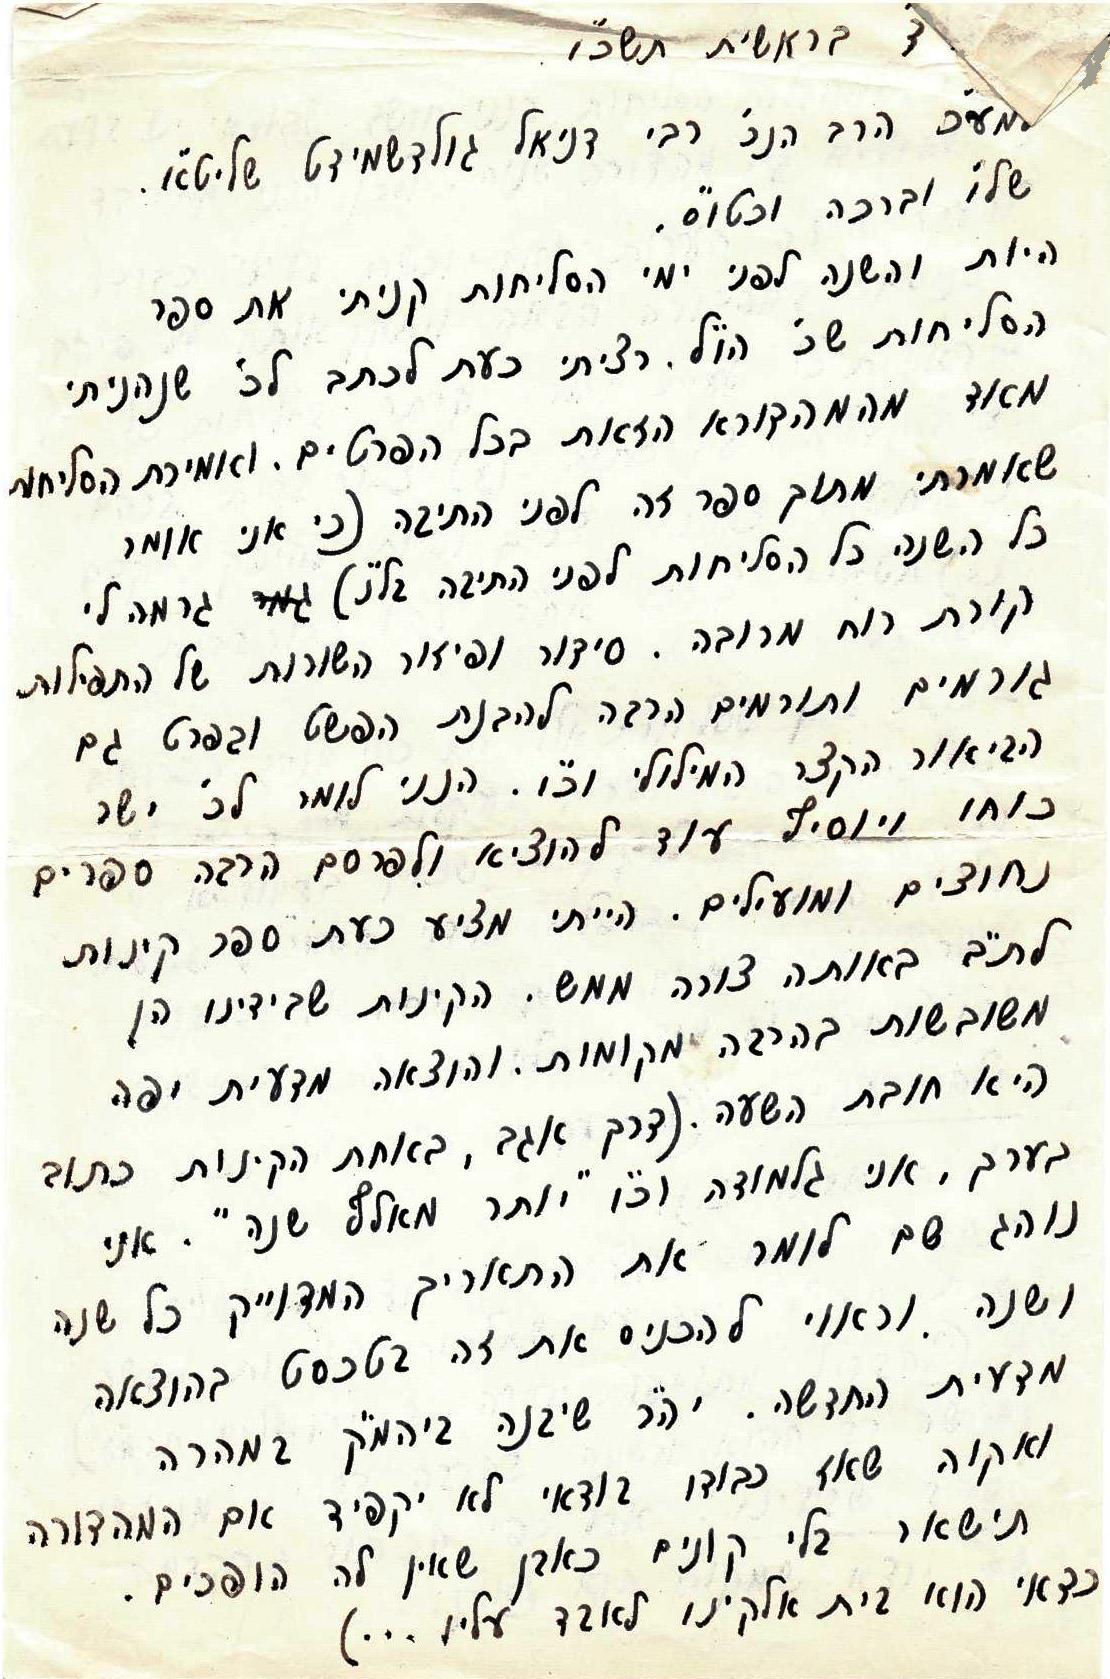 ד בראשית תשכ"ו.
למע"כ הרב הנכ' רבי דניאל גולדשמידט שליט"א.
שלו' וברכה וכטו"ס.
היות והשנה לפני ימי הסליחות קניתי את ספר
הסליחות שכ' הו"ל. רציתי כעת לכתב לכ' שנהניתי
מאוד מהמהדורא הזאת בכל הפרטים. ואמירת הסליחות
שאומרתי מתוך ספר זה לפני התיבה (כי אני אומר
כל השנה כל הסליחות לפני התיבה בל"נ) גרמה לי
קורת רוח מרובה. סידור ופיזור השורות של התפילות
גורמים ותורמים הרבה להבנת הפשט ובפרט גם
הביאור הקצר המילולי וכ"ו. הנני לומר לכ' ישר
כוחו ויוסיף עוד להוציא ולפרסם הרבה ספרים
נחוצים ומועילים. הייתי מציע כעת ספר קינות
לת"ב באותה צורה ממש. הקינות שבידינו הן
משובשות בהרבה מקומות. והוצאה מדעית יפה
היא חובת השעה. (דרך אגב, באחת הקינות כתוב
בערך, אני גלמודה וכ"ו "יותר מאלף שנה". אני
נוהג שם לומר את התאריך המדוייק כל שנה
ושנה. וראוי להכניס את זה בטכסט בהוצאה
מדעית החדשה. יה"ר שיבנה ביהמ"ק במהרה
ואקוה שאז כבודו בודאי לא יקפיד אם המהדורה
תישאר בלי קונים כאבן שאין לה הופכים.
כדאי הוא בית אלקינו לאבד עליו ...)